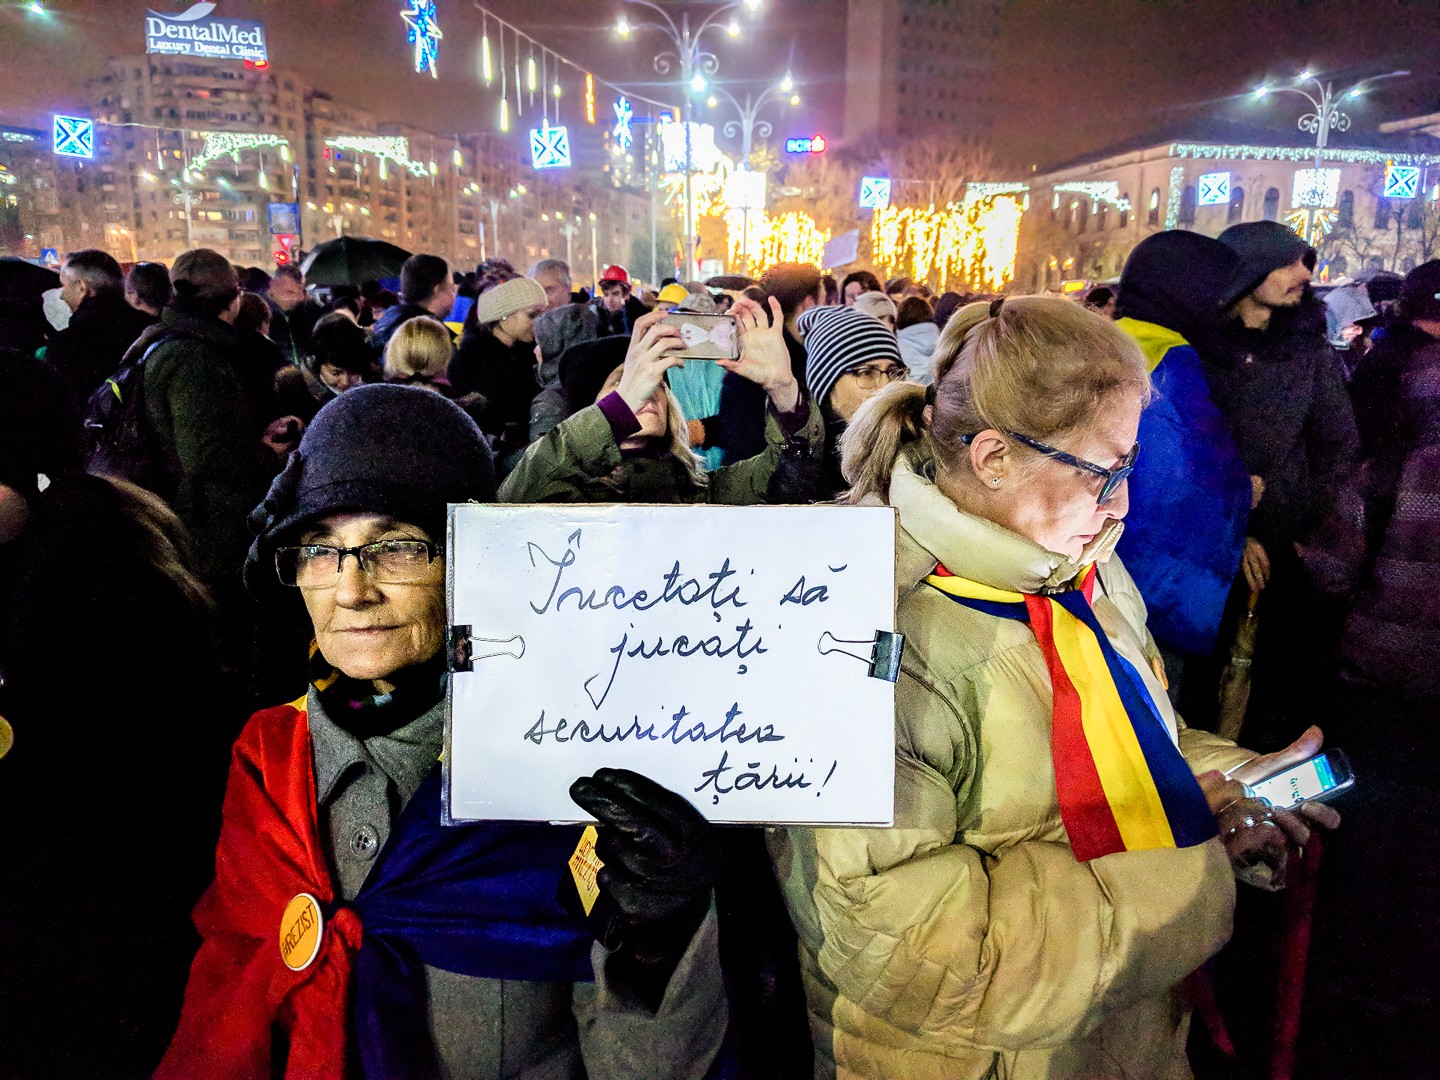 DentalMed
Luxury Dental Clinic
BCR
Încetați să
jucați
securitatea
țării!
#REZIST